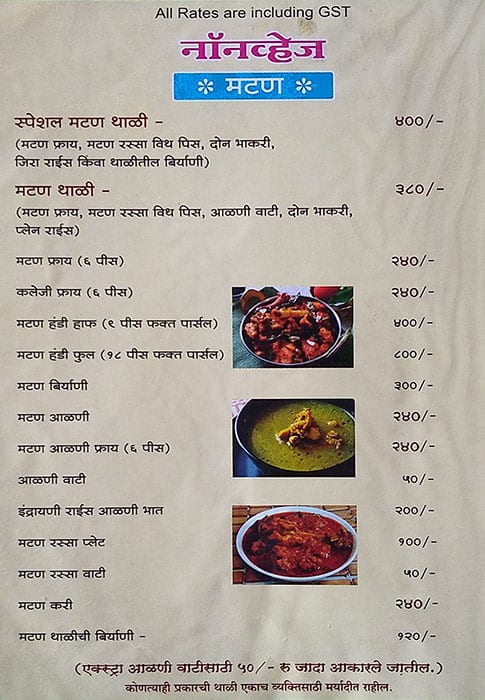 All Rates are including GST
नॉनव्हेज
* मटण *
स्पेशल मटण थाळी - ४००/-
(मटण फ्राय, मटण रस्सा विथ पिस, दोन भाकरी,
जिरा राईस किंवा थाळीतील बिर्याणी)
मटण थाळी - ३८०/-
(मटण फ्राय, मटण रस्सा विथ पिस, आळणी वाटी, दोन भाकरी,
प्लेन राईस)
मटण फ्राय (६ पीस) २४०/-
कलेजी फ्राय (६ पीस) २४०/-
मटण हंडी हाफ (९ पीस फक्त पार्सल) ४००/-
मटण हंडी फुल (१८ पीस फक्त पार्सल) ८००/-
मटण बिर्याणी ३००/-
मटण आळणी २४०/-
मटण आळणी फ्राय (६ पीस) २४०/-
आळणी वाटी ५०/-
इंद्रायणी राईस आळणी भात २००/-
मटण रस्सा प्लेट १००/-
मटण रस्सा वाटी ५०/-
मटण करी २४०/-
मटण थाळीची बिर्याणी - १२०/-
(एक्स्ट्रा आळणी वाटीसाठी ५०/- रु जादा आकारले जातील.)
कोणत्याही प्रकारची थाळी एकाच व्यक्तिसाठी मर्यादीत राहील.